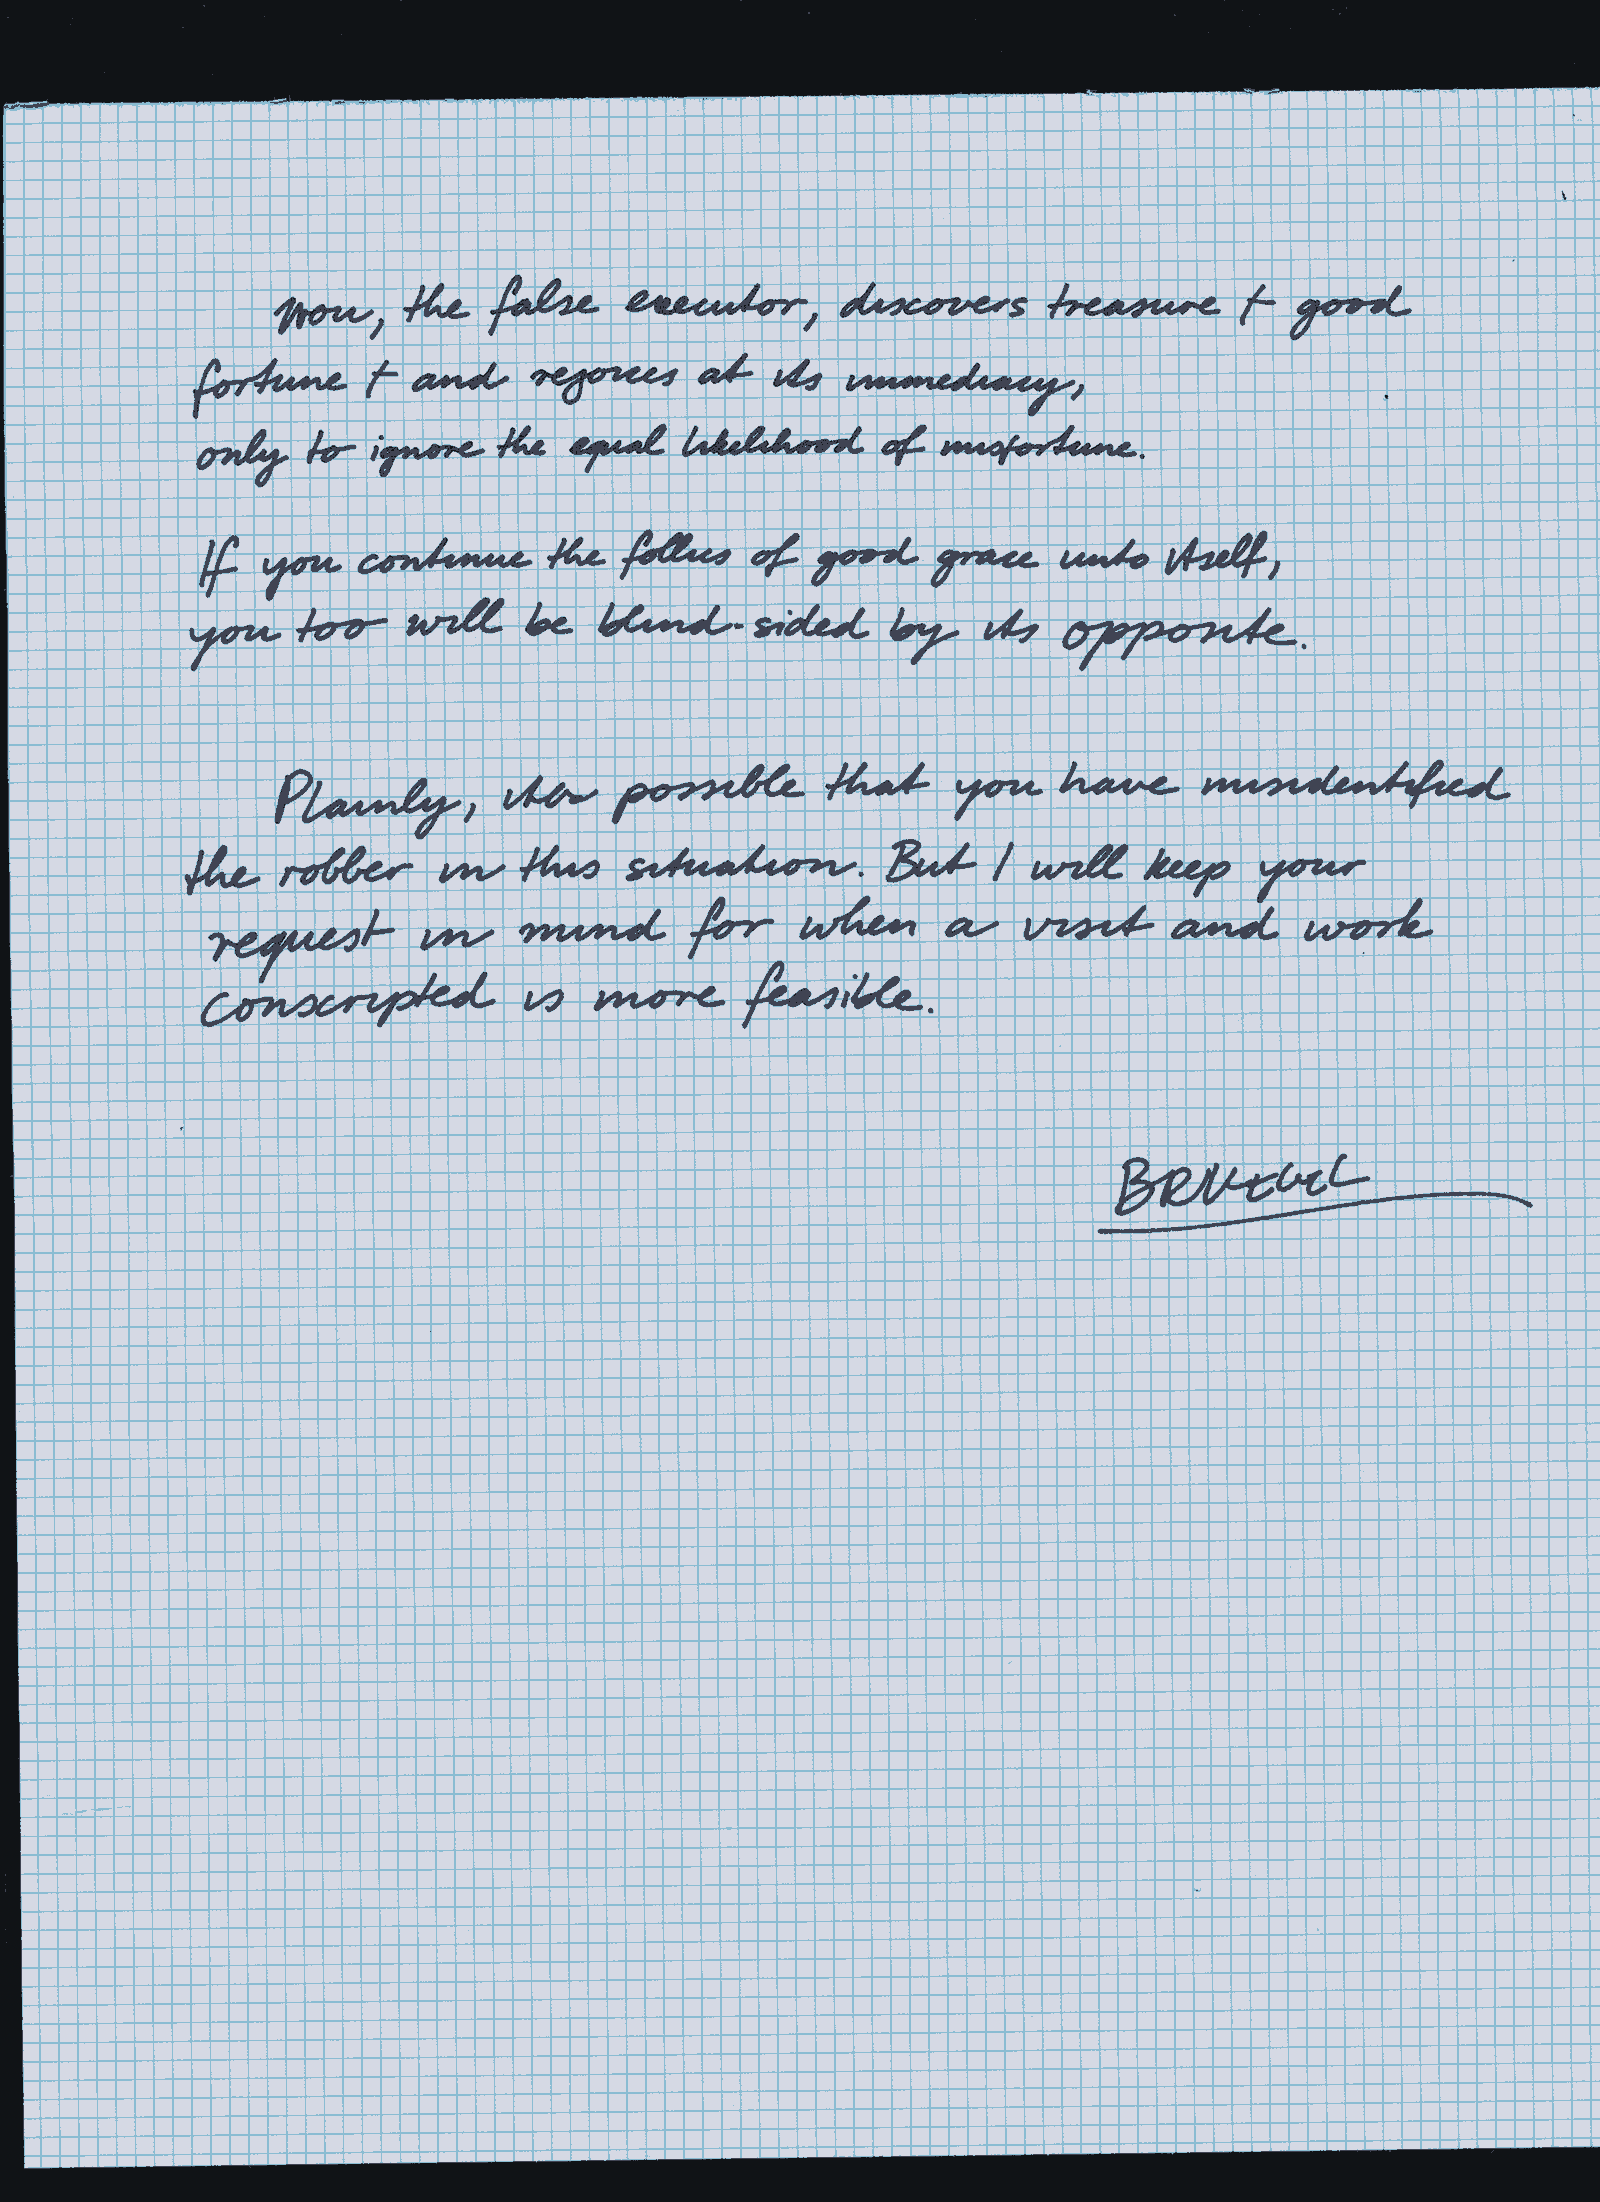 the false executor, discovers treasure + good
fortune + and rejoices at its immediacy,
only to ignore the equal likelihood of misfortune.
If you continue the follies of good grace unto itself,
you too will be blind-sided by its opposite.
Plainly, possible that you have misidentified
the robber in this situation. But I will keep your
request in mind for when a visit and work
conscripted is more feasible.